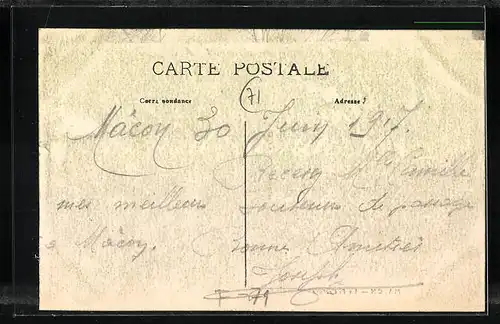 CARTE POSTALE
71
Correspondance Adresse
Mâcon 30 Juin 1917.
Recevez Mr Camille
mes meilleurs souvenirs de passage
à Mâcon. Bonne Amitiés
Joseph
F 71